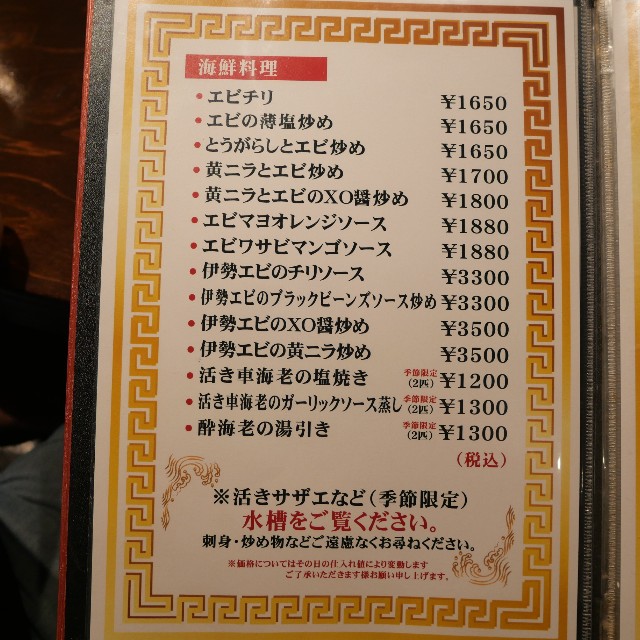 海鮮料理
•エビチリ ￥1650
•エビの薄塩炒め ￥1650
•とうがらしとエビ炒め ￥1650
•黄ニラとエビ炒め ￥1700
•黄ニラとエビのXO醤炒め ￥1800
•エビマヨオレンジソース ￥1880
•エビワサビマンゴソース ￥1880
•伊勢エビのチリソース ￥3300
•伊勢エビのブラックビーンズソース炒め ￥3300
•伊勢エビのXO醤炒め ￥3500
•伊勢エビの黄ニラ炒め ￥3500
•活き車海老の塩焼き 季節限定(2匹) ￥1200
•活き車海老のガーリックソース蒸し 季節限定(2匹) ￥1300
•酔海老の湯引き 季節限定(2匹) ￥1300
(税込)
※活きサザエなど(季節限定)
水槽をご覧ください。
刺身・炒め物などご遠慮なくお尋ねください。
※価格についてはその日の仕入れ値により変動します
ご了承いただきます様お願い申し上げます。